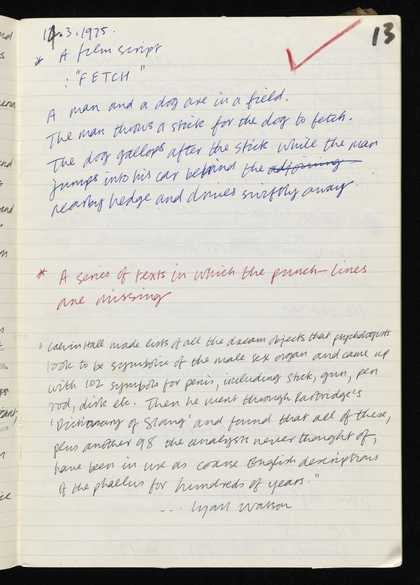 13
14.3.1975.
* A film script
: "FETCH"
A man and a dog are in a field.
The man throws a stick for the dog to fetch.
The dog gallops after the stick while the man
jumps into his car behind the adjoining
nearby hedge and drives swiftly away.
* A series of texts in which the punch-lines
are missing
" Calvin Hall made lists of all the dream objects that psychologists
look to be symbolic of the male sex organ and came up
with 102 symbols for penis, including stick, gun, pen
rod, dick etc. Then he went through Partridge's
'Dictionary of Slang' and found that all of these,
plus another 98 the analysts never thought of,
have been in use as coarse English descriptions
of the phallus for hundreds of years."
... Lyall Watson